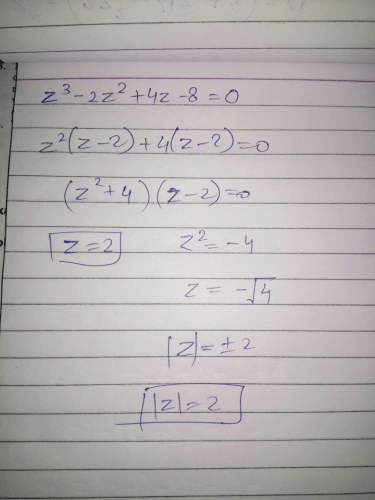 z³-2z²+4z-8=0
z²(z-2)+4(z-2)=0
(z²+4)(z-2)=0
z=2 z²=-4
z = -√4
|z|=±2
|z|=2